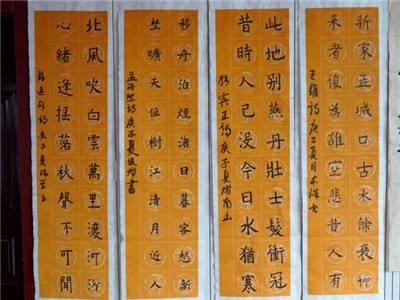 新家孟城口古木餘衰柳
来者復為誰空悲昔人有
王維詩庚子夏月
此地别燕丹壯士髮衝冠
昔時人已没今日水猶寒
駱賓王詩庚子夏
移舟泊煙渚日暮客愁新
埜曠天低樹江清月近人
孟浩然詩庚子夏書
北風吹白雲萬里渡河汾
心緒逢摇落秋聲不可聞
詩庚子夏